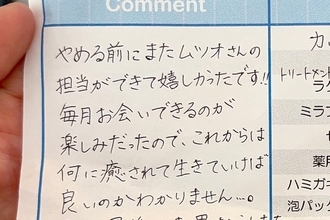 Comment
やめる前にまたムツオさんの
担当ができて嬉しかったです!!
毎月お会いできるのが
楽しみだったので、これからは
何に癒されて生きていけば
良いのかわかりません…。
トリートメント
ミラブ
薬用
ハミガキ
泡パック